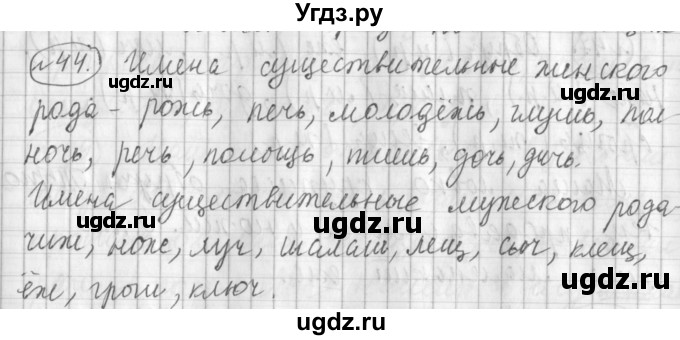 Угдз.ру
№44. Имена существительные женского
рода - рожь, печь, молодёжь, глушь, пол-
ночь, речь, помощь, тишь, дочь, дичь.
Имена существительные мужского рода-
чиж, нож, луч, шалаш, лещ, сыч, клещ,
ёж, грош, ключ.
ugdz.ru
ugdz.ru
ugdz.ru
ugdz.ru
ugdz.ru
ugdz.ru
ugdz.ru
ugdz.ru
ugdz.ru
ugdz.ru